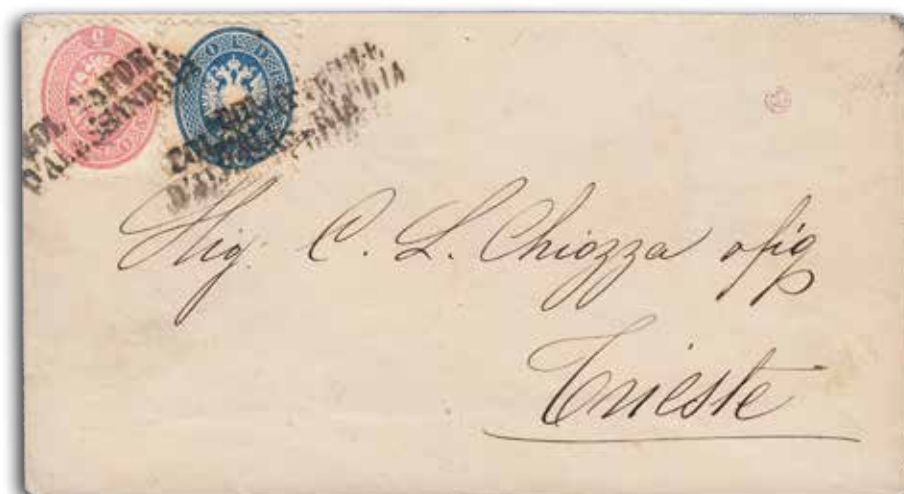 COL VAPORE
D'ALESSANDRIA
COL VAPORE
D'ALESSANDRIA
Sig. C. L. Chiozza
Trieste